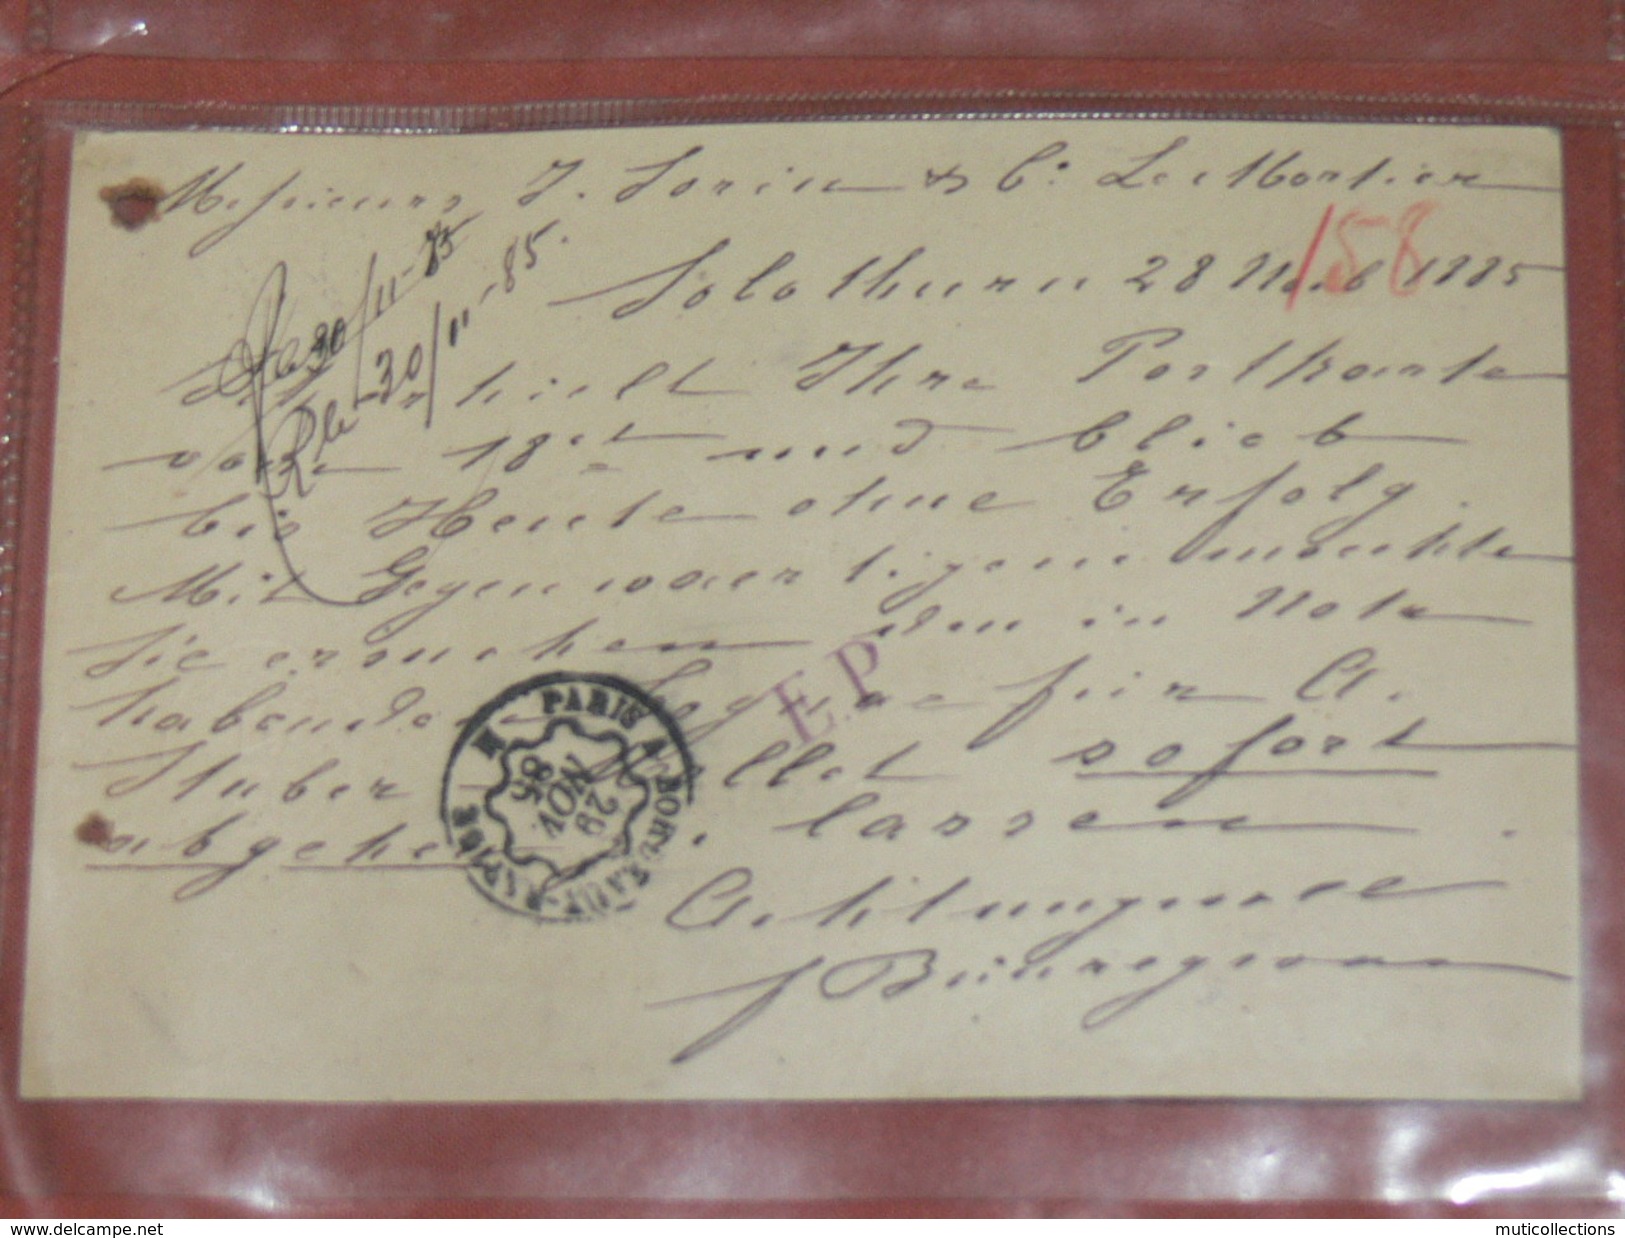 Messieurs J. Sorin & Cº Le Mortier
158
Solothurn 28 Novb 1885
Rle 30/11-85
Rle 30/11-85.
erhielt Ihre Postkaarte
vom 18et und blieb
bis Heute ohne Erfolg.
Mit Gegenwaertigem moechte
Sie ersuchen den in Note
habenden für A.
Stuber sofort
abgehen lassen.
Achtungsvoll
E P
PARIS A BORDEAUX-RAPIDE
29
NOV
85
www.delcampe.net
muticollections